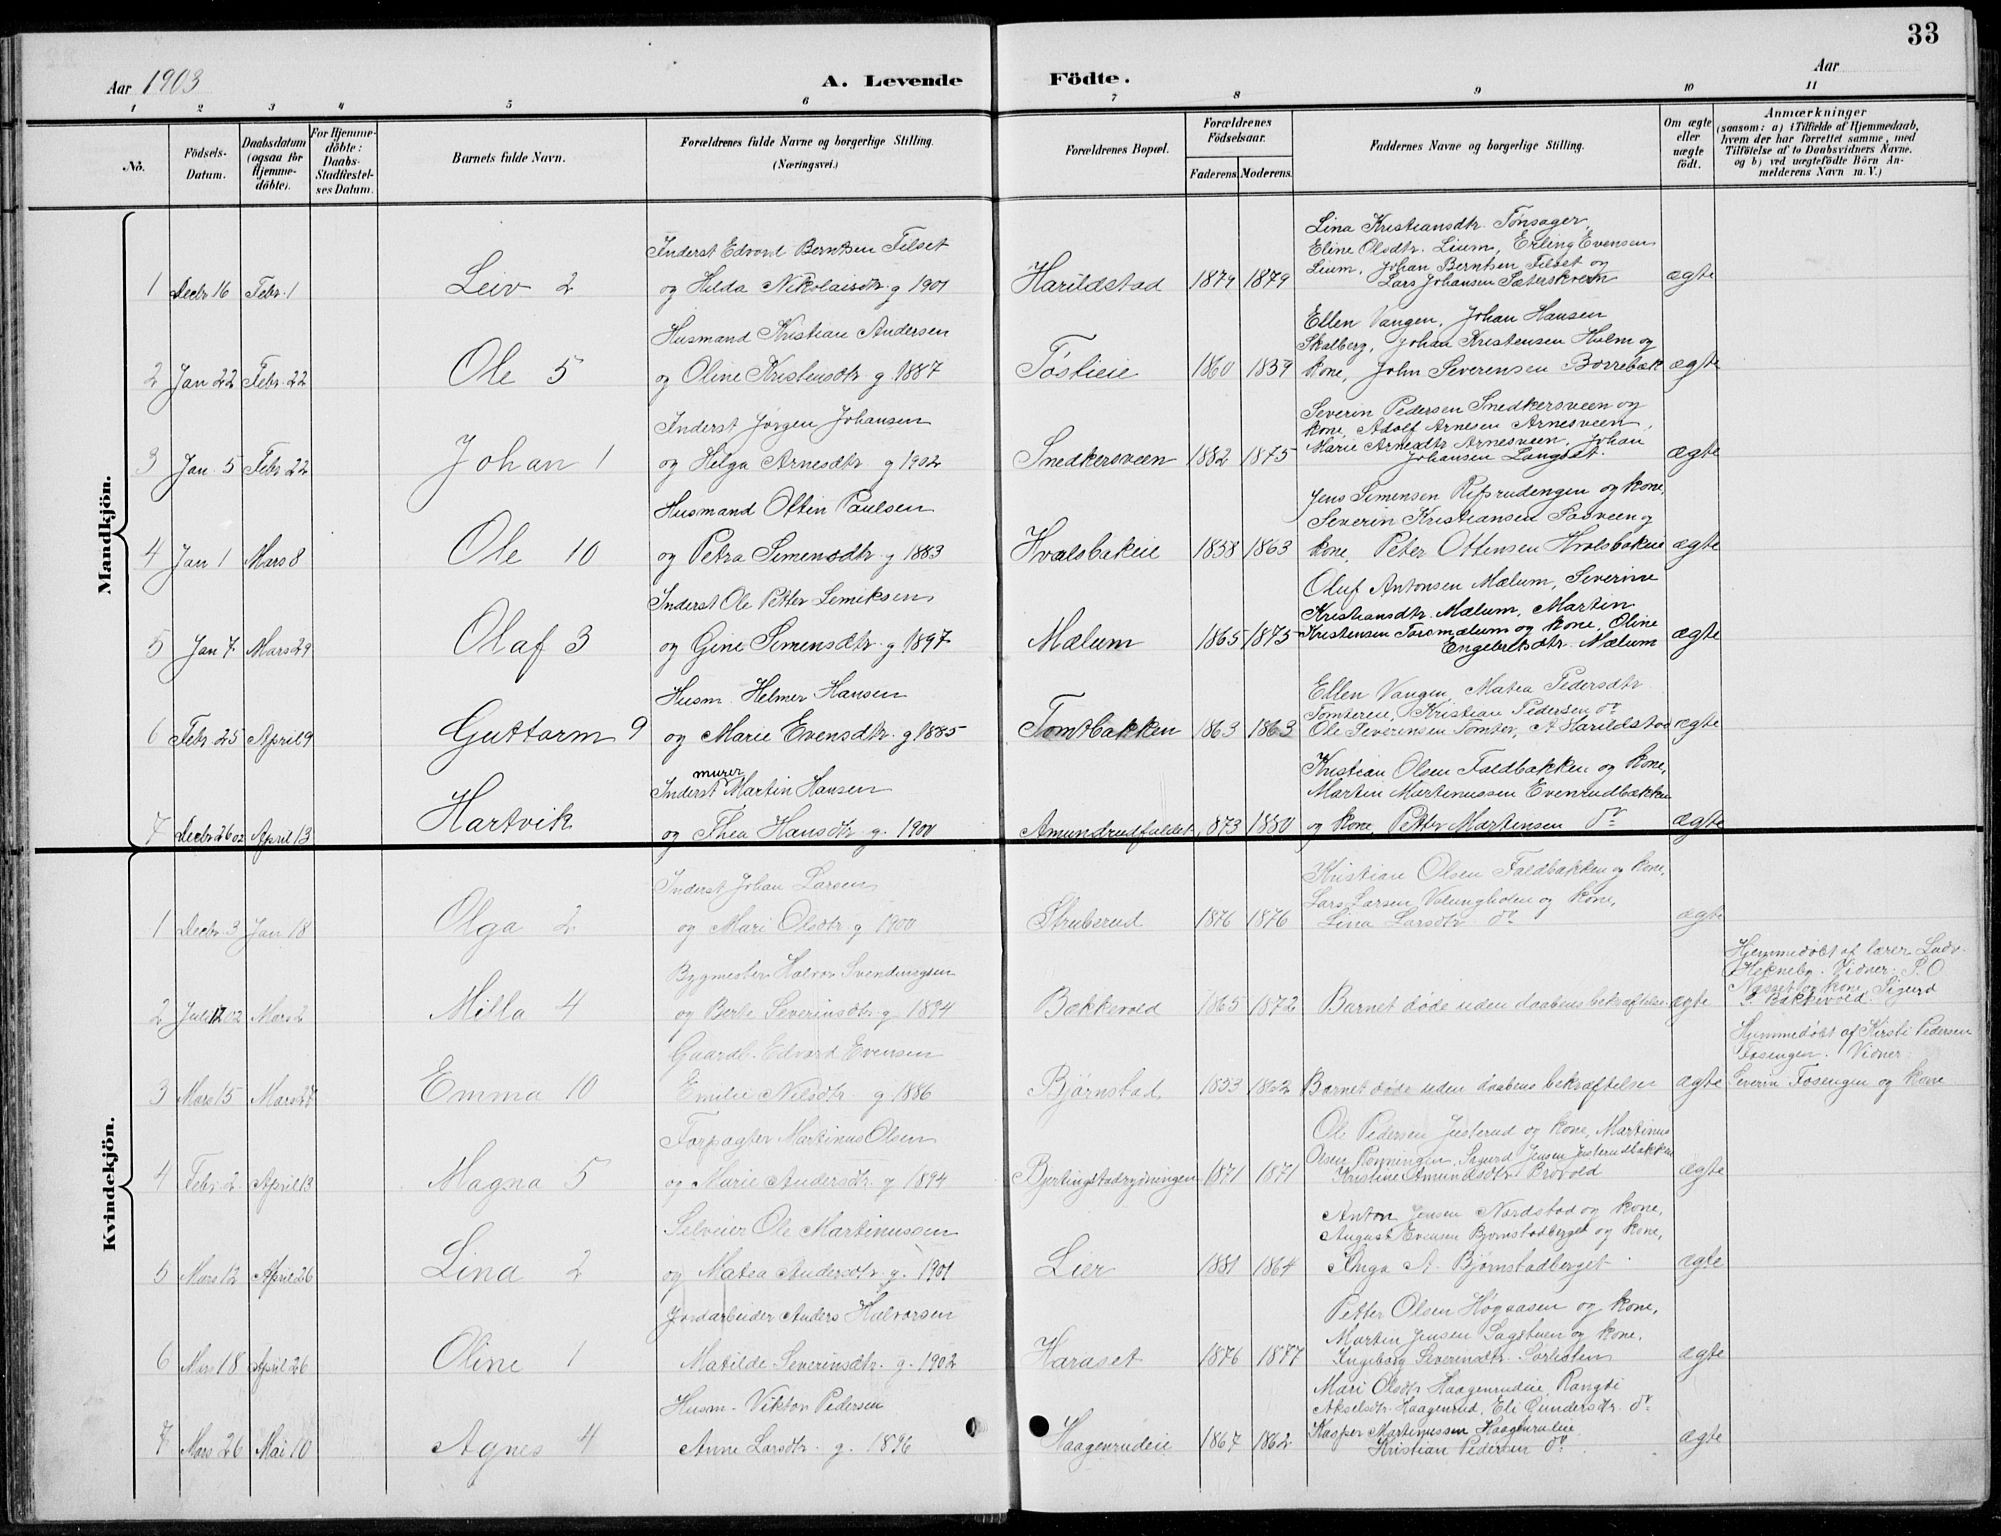 33
Aar 1903
A. Levende Födte.
Aar
1 2 3 4 5 6 7 8 9 10 11
No.
Födsels-Datum.
Daabsdatum (ogsaa for Hjemme-döbte).
For Hjemme-döbte: Daabs-Stadfæstel-ses Datum.
Barnets fulde Navn.
Forældrenes fulde Navne og borgerlige Stilling. (Næringsvei.)
Forældrenes Bopæl.
Forældrenes Födselsaar.
Faderens. Moderens.
Faddernes Navne og borgerlige Stilling.
Om ægte eller uægte födt.
Anmærkninger
(saasom: a) i Tilfælde af Hjemmedaab, hvem der har forrettet samme, med Tilföielse af to Daabsvidners Navne. og b) ved uægtefödte Börn Anmelderens Navn m. V.)
Mandkjön.
Inderst Edvard Berntsen Filset
Lina Kristiansdtr. Tønsager,
Eline Olsdtr. Lium, Erling Evensen
Lium, Johan Berntsen Filset og
Lars Johansen Sæterskvern
1 Decbr 16 Febr. 1 Leiv 2 og Hilda Nikolaisdtr. g 1901 Harildstad 1879 1879 ægte
Husmand Kristian Andersen
Ellen Vangen, Johan Hansen
Skalberg, Johan Kristensen Holm og
2 Jan 22 Febr. 22 Ole 5 og Oline Kristensdtr g 1887 Tøstieie 1860 1859 kone, John Severensen Borrebæk ægte
Inderst Jørgen Johansen
Severin Pedersen Snedkersveen og
kone, Adolf Arnesen Arnesveen,
Marie Arnesdtr Arnesveen, Johan
Johansen
3 Jan 5 Febr 22 Johan 1 og Helga Arnesdtr g 1902 Snedkersveen 1882 1875 ægte
Husmand Ottin Paulsen
Jens Simensen Rifsrudengen og kone,
Severin Kristiansen og
4 Jan 1 Mars 8 Ole 10 og Petra Simensdtr g 1883 Hvalsbakeie 1858 1863 kone, Peter Ottensen Hvalsbakeie ægte
Inderst Ole Petter Lemiksen
Oluf Antonsen Mælum, Severine
Kristiansdtr. Mælum, Martin
Kristensen og kone, Oline
Engebretsdtr. Mælum
5 Jan 7 Mars 29 Olaf 3 og Gine Simensdtr. g 1897 Mælum 1865 1875 ægte
Husm. Helmer Hansen
Ellen Vangen, Matea Pedersdtr
Tomtereie, Kristian Pedersen do
6 Febr 25 April 9 Guttorm 9 og Marie Evensdtr. g 1885 Tomtbakken 1863 1863 Ole Severinsen Tomter, A Harildstad ægte
murer
Inderst Martin Hansen
Kristian Olsen Faldbakken og kone,
Martin Martinussen Evenrudbækken
7 Decbr 26 02 April 13 Hartvik og Thea Hansdtr. g. 1900 Amundrudfaldet 1873 1880 og kone, Petter Martensen do ægte
Kvindekjön.
Inderst Johan Larsen
Kristian Olsen Faldbakken og kone,
Lars Larsen og kone,
1 Decbr 3 Jan 18 Olga 2 og Mari Olsdtr g 1900 Strubsrud 1876 1876 Lina Larsdtr do ægte
Bygmester Halvor Svendungsen
Hjemmedøbt af lærer Ludv.
Hekneby. Vidner: P.O
Næsset og kone, Sigurd
P. Bækkevold.
2 Juli 12 02 Mars 2 Milla 4 og Berte Severinsdtr g. 1894 Bækkevold 1865 1872 Barnet døde uden daabens bekræftelse ægte
Gaardb. Edvard Evensen
Hjemmedøbt af Kirsti Pedersen
Fosengen. Vidner:
3 Mars 15 Mars 27 Emma 10 Emilie Nilsdtr. g 1886 Bjørnstad 1853 1862 Barnet døde uden daabens bekræftelse ægte Severin Fosengen og kone
Forpagter Martinus Olsen
Ole Pedersen Justerud og kone, Martinus
Olsen Rønningen, Sigurd Jensen Justerudbakken
4 Febr. 2 April 13 Magna 5 og Marie Andersdtr. g 1894 Bjertingstadrydningen 1871 1871 Kristine Amundsdtr. Brovold ægte
Selveier Ole Martinussen
Anton Jensen Nordstad og kone,
August Evensen Bjørnstadberget og kone,
5 Mars 12 April 26 Lina 2 og Matea Andersdtr. g. 1901 Lier 1881 1864 Inga A. Bjørnstadberget ægte
Jordarbeider Anders Halvorsen
Petter Olsen Høgaasen og kone,
Martin Jensen Sagstuen og kone,
6 Mars 18 April 26 Oline 1 Matilde Severinsdtr. g. 1902 Haraset 1876 1877 Ingeborg Severensdtr. Sørlisten ægte
Husm. Viktor Pedersen
Mari Olsdtr Haagenrudeie, Rangdi
Akselsdtr. Haagenrud, Eli Gundersdtr. do
7 Mars 26 Mai 10 Agnes 4 Anne Larsdtr. g. 1896 Haagenrudeie 1867 1862 Kasper Martinussen Haagenrudeie ægte
Kristian Pedersen do